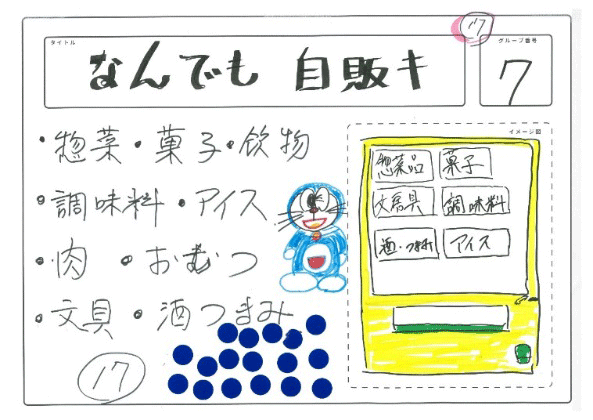 17
タイトル
なんでも 自販キ
グループ番号
7
・惣菜・菓子・飲物
・調味料・アイス
・肉 ・おむつ
・文具・酒つまみ
17
イメージ図
惣菜品 菓子
文房具 調味料
酒・つまみ アイス